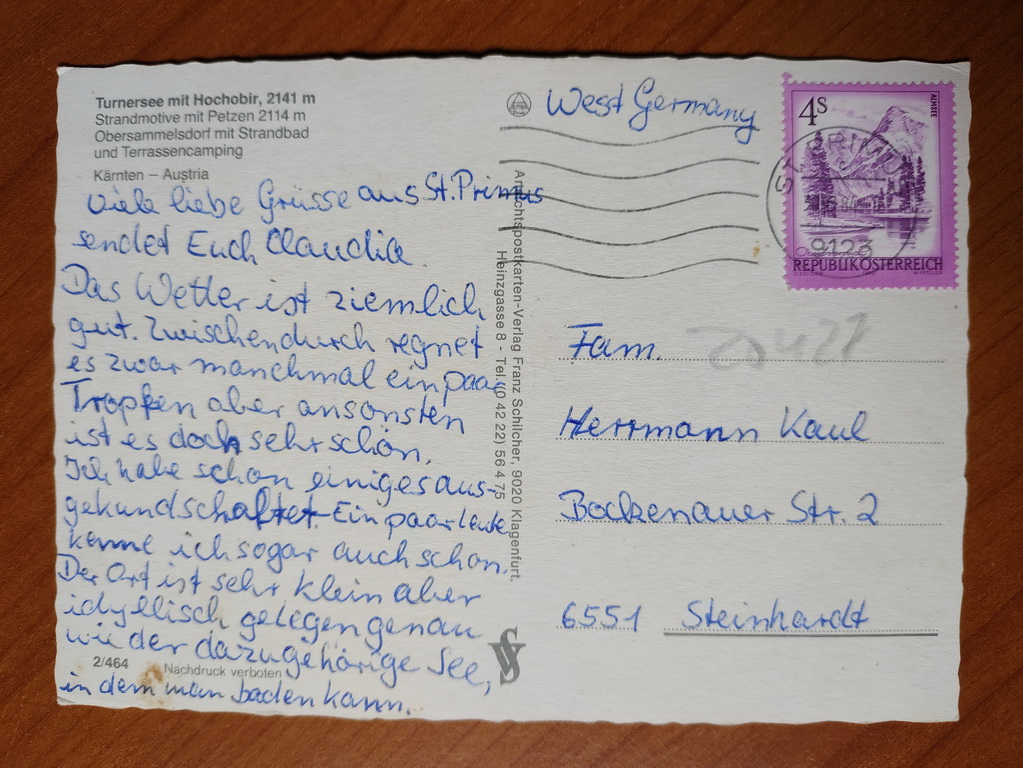 Turnersee mit Hochobir, 2141 m
Strandmotive mit Petzen 2114 m
Obersammelsdorf mit Strandbad
und Terrassencamping
Kärnten – Austria
Viele liebe Grüsse aus St. Primus
sendet Euch Claudia.
Das Wetter ist ziemlich
gut. Zwischendurch regnet
es zwar manchmal ein paar
Tropfen aber ansonsten
ist es doch sehr schön.
Ich habe schon einiges aus-
gekundschaftet. Ein paar Leute
kenne ich sogar auch schon.
Der Ort ist sehr klein aber
idyllisch gelegen genau
wie der dazugehörige See,
in dem man baden kann.
2/464
Nachdruck verboten
Ansichtspostkarten-Verlag Franz Schilcher, 9020 Klagenfurt,
Heinzgasse 8 - Tel. (0 42 22) 56 4 75
West Germany
4S
ALMSEE
REPUBLIK ÖSTERREICH
ST. PRIMUS
9123
Fam.
Herrmann Kaul
Bockenauer Str. 2
6551 Steinhardt